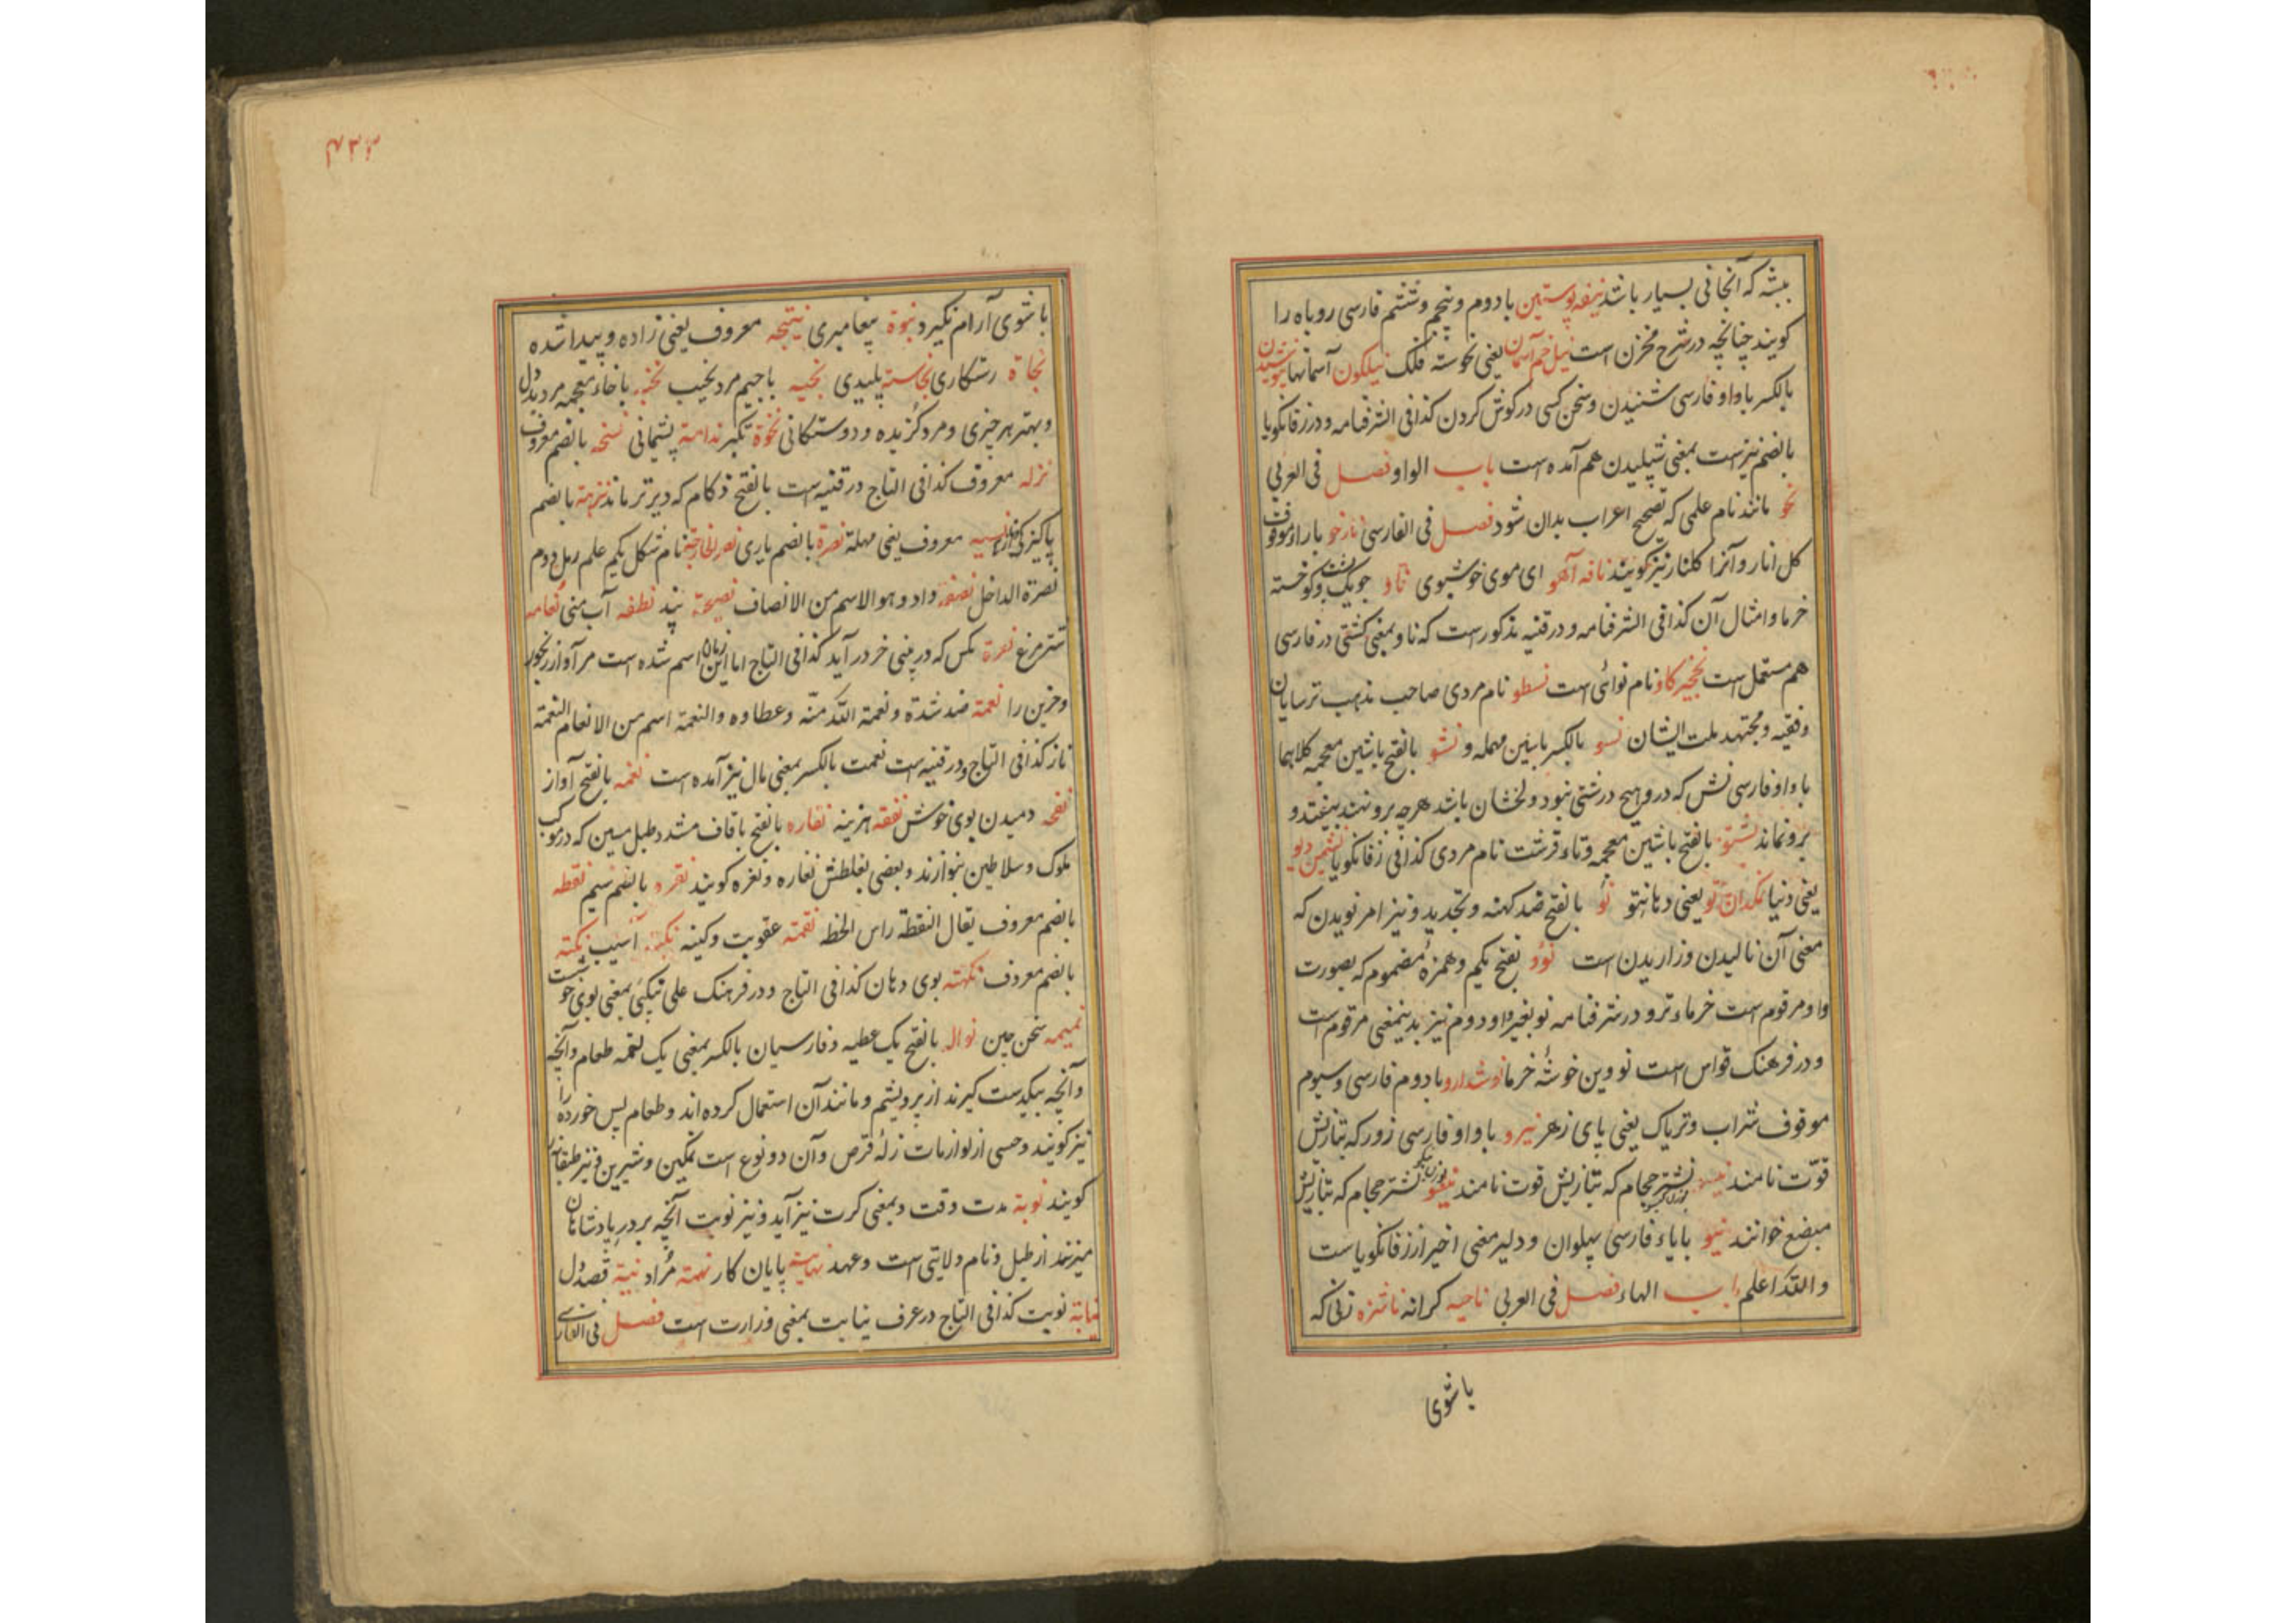 بیشه که آنجا نی بسیار باشد نیفه پوستین با دوم و پنجم و ششم فارسی روباه را
کویند چنانچه در شرح مخزن است نیل خم آسمان یعنی نحوسته فلک نیلکون آسمانها نیوشیدن
بالکسر با واو فارسی شنیدن و سخن کسی در کوش کردن کذا فی الشرفنامه و در زفانکویا
بالضم نیز است بمعنی شپلیدن هم آمده است باب الواو فصل فی العربی
نحو مانند نام علمی که تصحیح اعراب بدان شود فصل فی الفارسی نارخو با راء موقوف
کل انار و آنرا کلنار نیز کویند نافه آهو ای موی خوشبوی ناو جویک پشت و کوخسته
خرما و امثال آن کذا فی الشرفنامه و در قنیه مذکور است که ناو بمعنی کشتی در فارسی
هم مستعمل است نخجیر کاو نام نوائی است نسطو نام مردی صاحب مذهب ترسایان
و فقیه و مجتهد ملت ایشان نسو بالکسر با سین مهمله و نشو بالفتح با شین معجمه کلاهما
با واو فارسی نش که درو هیچ درشتی نبود و لخشان باشد هرچه برو نهند بیفتد و
برو نماند نشتو بالفتح با شین معجمه و تاء قرشت نام مردی کذا فی زفانکویا نشیمن دیو
یعنی دنیا نمکدان تو یعنی دهان تو نو بالفتح ضد کهنه و تجدید و نیز امر نویدن که
معنی آن نالیدن و زاریدن است نوؤ بفتح یکم و همزهٔ مضموم که بصورت
واو مرقوم است خرماء تر و در شرفنامه نو بغیر واو دوم نیز بدینمعنی مرقوم است
و در فرهنک قواس است نووین خوشهٔ خرما نوشدارو با دوم فارسی و سیوم
موقوف شراب و تریاک یعنی پای زهر نیرو با واو فارسی زور که بتازیش
قوّت نامند نیسو نشتر حجام که بتازیش قوت نامند نیشو نشتر حجام که بتازیش
مبضع خوانند نیو با یاء فارسی پهلوان و دلیر معنی اخیر از زفانکویا است
و اللّه اعلم باب الهاء فصل فی العربی ناحیه کرانه ناشزه زنی که
با شوی
۴۳۳
با شوی آرام نکیرد نبوة پیغامبری نتیجه معروف یعنی زاده و پیدا شده
نجاة رستکاری نجاسته پلیدی نجیه با جیم مرد نجیب نخبه با خاء معجمه مرد بددل
و بهتر هر چیزی و مرد کزیده و دوستکانی نخوة تکبر ندامة پشیمانی نسخه بالضم معروف
نزله معروف کذا فی التاج در قنیه است بالفتح زکام که دیرتر ماند نزهة بالضم
پاکیزکی نسیه معروف یعنی مهلة نصرة بالضم یاری نصرة الخارجة نام شکل یکم علم رمل دوم
نصرة الداخل نصفه داد و هو الاسم من الانصاف نصیحة پند نطفه آب منی نعامه
شترمرغ نعرة مکس که در بینی خر درآید کذا فی التاج اما این زمان اسم شده است مر آواز رنجور
و حزین را نعمة ضد شدة و نعمة اللّه منّه و عطاوه والنعمة اسم من الانعام النعمة
ناز کذا فی التاج و در قنیه است نعمت بالکسر بمعنی مال نیز آمده است نغمه بالفتح آواز
نفحه دمیدن بوی خوش نفقه هزینه نقاره بالفتح با قاف مشدد طبل مسین که در موکب
ملوک و سلاطین بنوازند و بعضی بغلطش نغاره و نغره کویند نقره بالضم سیم نقطه
بالضم معروف یقال النقطة راس الخط نقمته عقوبت و کینه نکبة آسیب نکته
بالضم معروف نکهته بوی دهان کذا فی التاج و در فرهنک علی نیکبی بمعنی بوی خوش است
نمیمه سخن چین نواله بالفتح یک عطیه و فارسیان بالکسر بمعنی یک لقمه طعام و آنچه
و آنچه بیکدست کیرند از بر و پشم و مانند آن استعمال کرده اند و طعام پس خورده را
نیز کویند و حسی از لوازمات زلهٔ قرص و آن دو نوع است نمکین و شیرین و نیز طبقات
کویند نوبة مدت وقت و بمعنی کرت نیز آید و نیز نوبت آنچه بر در پادشاهان
میزنند از طبل و نام ولایتی است و عهد نهایة پایان کار نهمة مراد نیة قصد دل
نیابة نوبت کذا فی التاج در عرف نیابت بمعنی وزارت است فصل فی الفارسی